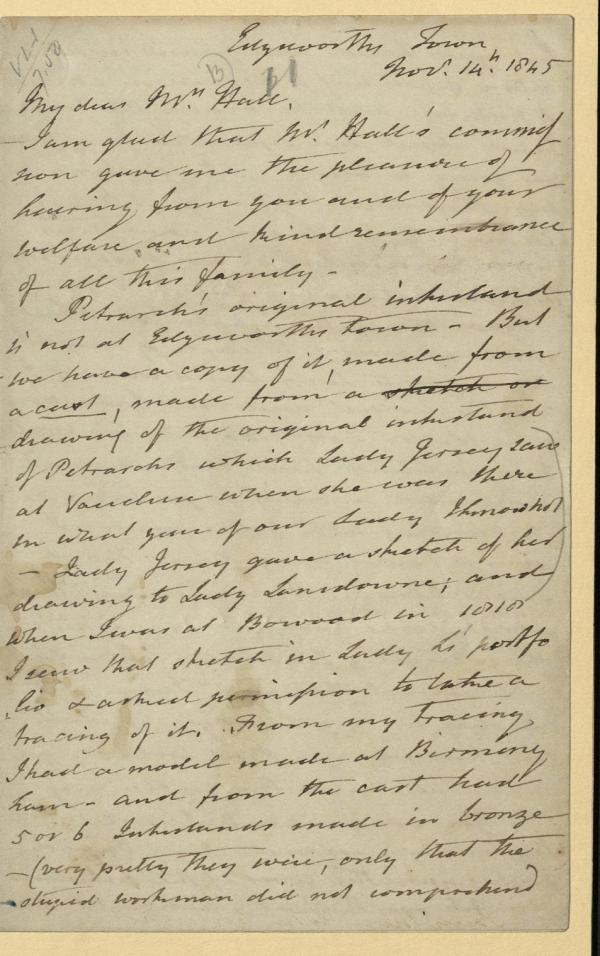 Edgeworths Town
Nov.r 14.th 1845
B
My dear Mrs. Hall,
I am glad that Mr. Hall's commis
sion gave me the pleasure of
hearing from you and of your
welfare and kind remembrance
of all this family -
Petrarch's original inkstand
is not at Edgeworths Town - But
we have a copy of it, made from
a cast, made from a sketch or
drawing of the original inkstand
of Petrarchs which Lady Jersey saw
at Vaucluse when she was there
in what year of our Lady I know not
- Lady Jersey gave a sketch of her
drawing to Lady Lansdowne; and
when I was at Bowood in 1818
I saw that sketch in Lady L's portfo
lio & asked permission to take a
tracing of it. From my tracing
I had a model made at Birming
ham - and from the cast had
5 or 6 Inkstands made in bronze
- (very pretty they were, only that the
stupid workman did not comprehend